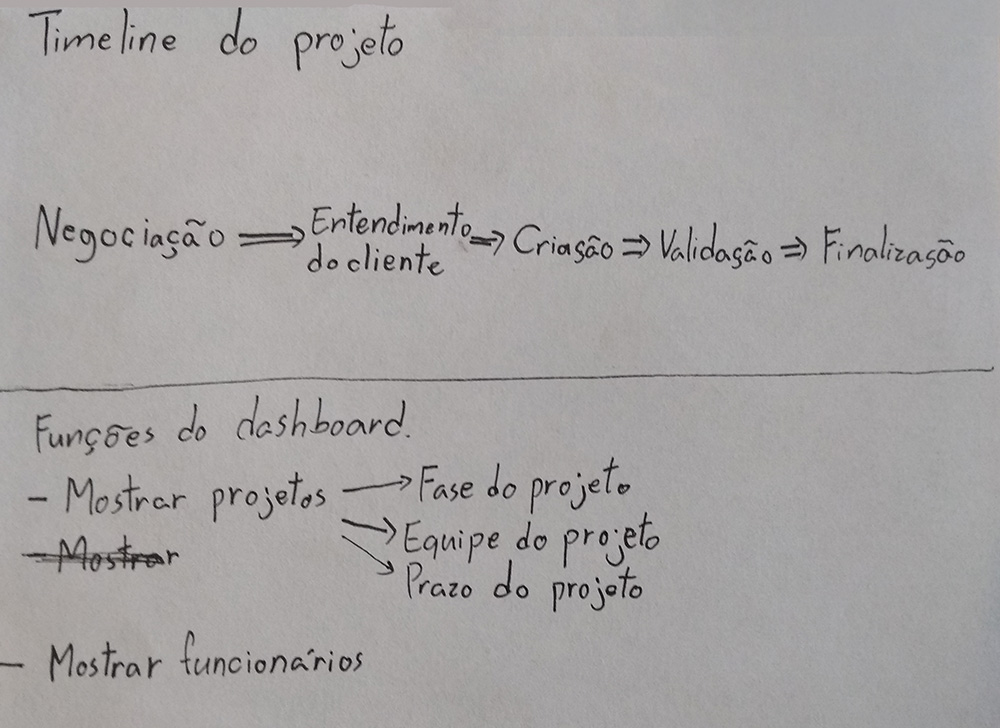 Timeline do projeto
Negociação ⇒ Entendimento do cliente ⇒ Criação ⇒ Validação ⇒ Finalização
Funções do dashboard.
- Mostrar projetos → Fase do projeto
→ Equipe do projeto
- Mostrar
→ Prazo do projeto
- Mostrar funcionários